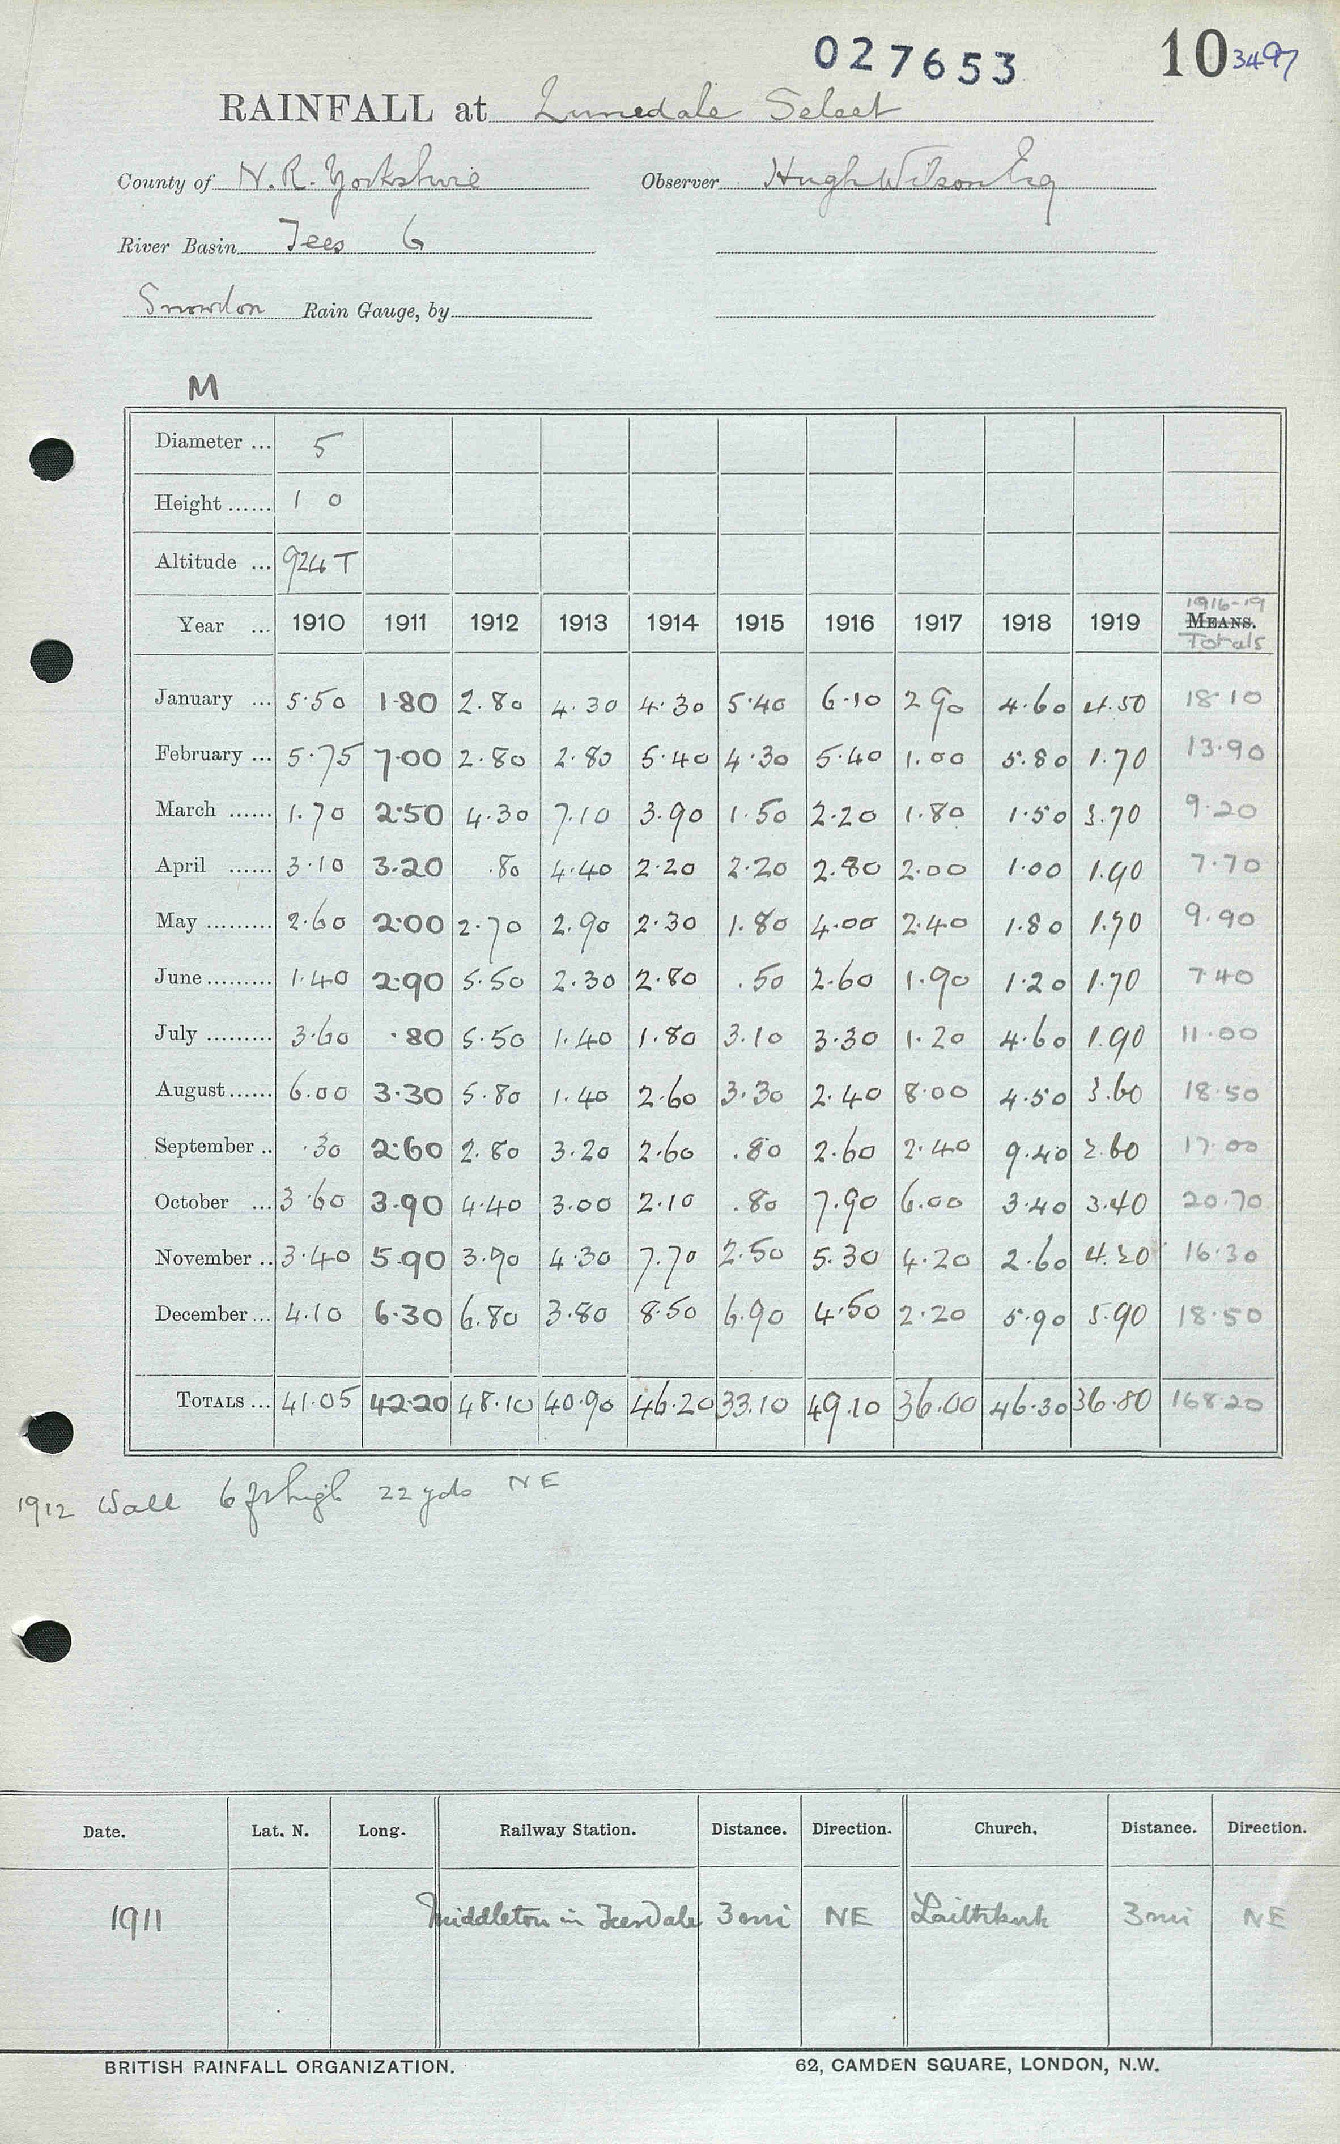 027653 10 3497
RAINFALL at Lunedale Select
County of N.R. Yorkshire Observer Hugh Wilson Esq
River Basin Tees 6
Snowdon Rain Gauge, by
M
Diameter ... 5
Height ...... 1 0
Altitude ... 924 T
1916-19
Year ... 1910 1911 1912 1913 1914 1915 1916 1917 1918 1919 MEANS.
Totals
January ... 5.50 1.80 2.80 4.30 4.30 5.40 6.10 2 90 4.60 4.50 18.10
February ... 5.75 7.00 2.80 2.80 5.40 4.30 5.40 1.00 5.80 1.70 13.90
March ...... 1.70 2.50 4.30 7.10 3.90 1.50 2.20 1.80 1.50 3.70 9.20
April ...... 3.10 3.20 .80 4.40 2.20 2.20 2.80 2.00 1.00 1.90 7.70
May ......... 2.60 2.00 2.70 2.90 2.30 1.80 4.00 2.40 1.80 1.70 9.90
June ......... 1.40 2.90 5.50 2.30 2.80 .50 2.60 1.90 1.20 1.70 7.40
July ......... 3.60 .80 5.50 1.40 1.80 3.10 3.30 1.20 4.60 1.90 11.00
August ...... 6.00 3.30 5.80 1.40 2.60 3.30 2.40 8.00 4.50 3.60 18.50
September .. .30 2.60 2.80 3.20 2.60 .80 2.60 2.40 9.40 2.60 17.00
October ... 3.60 3.90 4.40 3.00 2.10 .80 7.90 6.00 3.40 3.40 20.70
November .. 3.40 5.90 3.90 4.30 7.70 2.50 5.30 4.20 2.60 4.20 16.30
December ... 4.10 6.30 6.80 3.80 8.50 6.90 4.50 2.20 5.90 5.90 18.50
TOTALS ... 41.05 42.20 48.10 40.90 46.20 33.10 49.10 36.00 46.30 36.80 168.20
1912 Wall 6 ft high 22 yds NE
Date. Lat. N. Long. Railway Station. Distance. Direction. Church. Distance. Direction.
1911 Middleton in Teesdale 3 mi NE Laithkirk 3 mi NE
BRITISH RAINFALL ORGANIZATION. 62, CAMDEN SQUARE, LONDON, N.W.